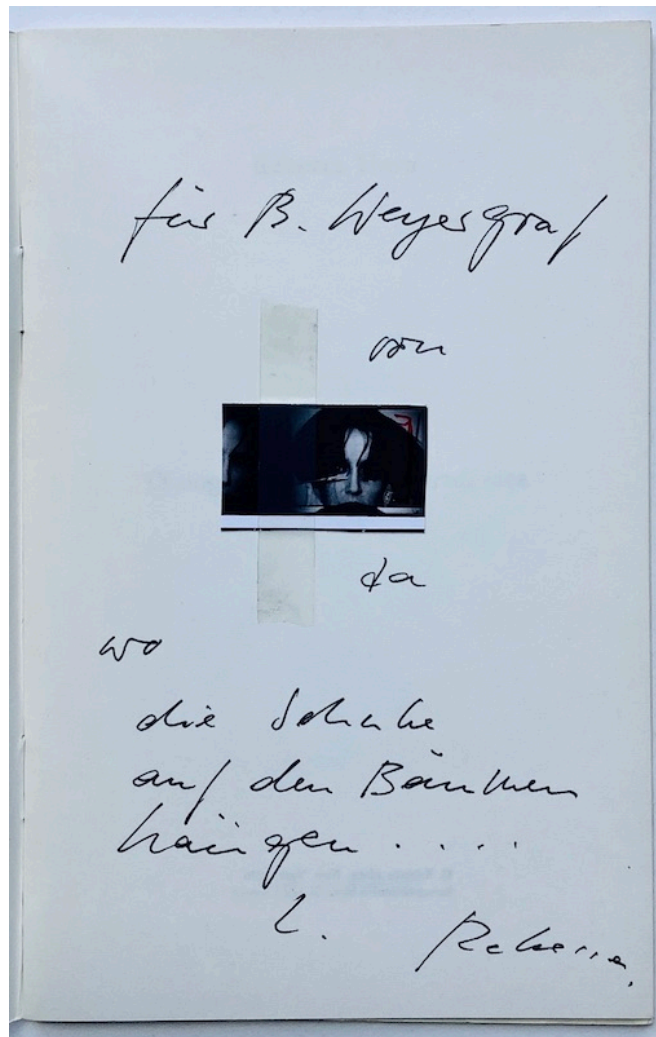 für B. Weyergraf
von
da
wo
die Schuhe
auf den Bäumen
hängen . . . .